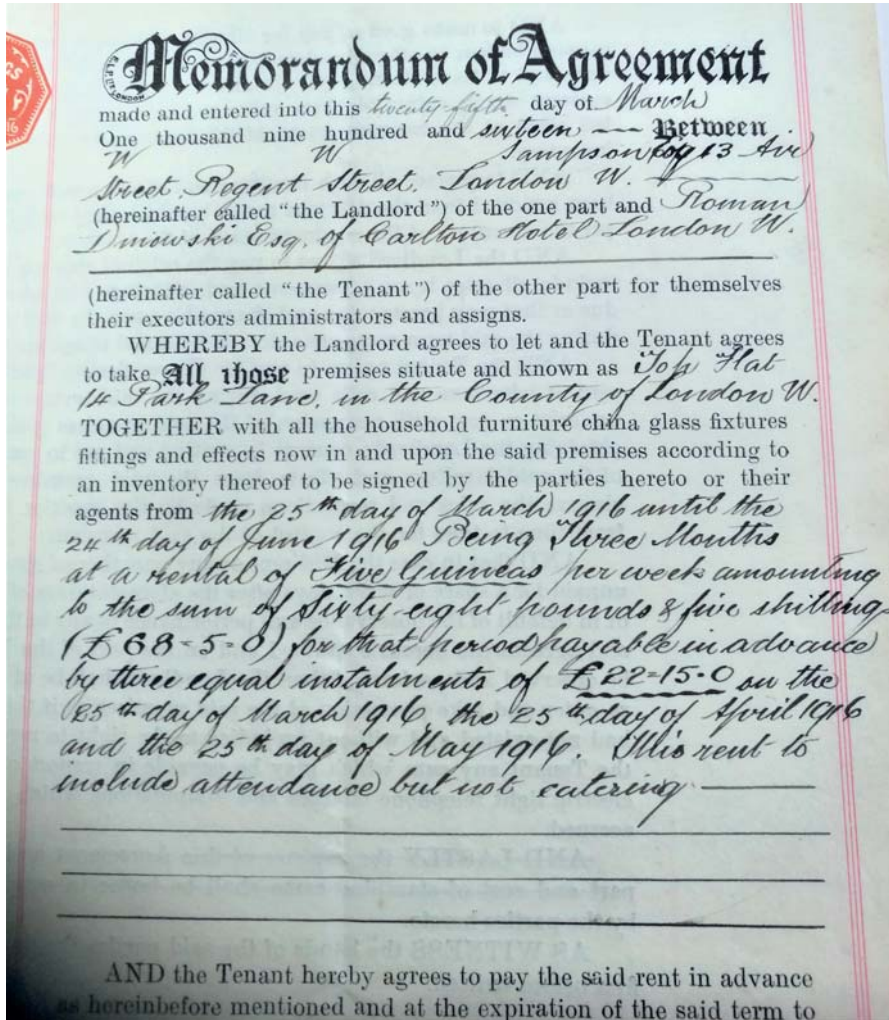 Memorandum of Agreement
made and entered into this twenty-fifth day of March
One thousand nine hundred and sixteen Between
W W Sampson Esq 13 Air
Street, Regent Street, London W.
(hereinafter called "the Landlord") of the one part and Roman
Dmowski Esq. of Carlton Hotel London W.
(hereinafter called "the Tenant") of the other part for themselves
their executors administrators and assigns.
WHEREBY the Landlord agrees to let and the Tenant agrees
to take All those premises situate and known as Top Flat
14 Park Lane, in the County of London W.
TOGETHER with all the household furniture china glass fixtures
fittings and effects now in and upon the said premises according to
an inventory thereof to be signed by the parties hereto or their
agents from the 25th day of March 1916 until the
24th day of June 1916 Being Three Months
at a rental of Five Guineas per week amounting
to the sum of Sixty eight pounds & five shillings
(£68-5-0) for that period payable in advance
by three equal instalments of £22-15-0 on the
25th day of March 1916, the 25th day of April 1916
and the 25th day of May 1916. This rent to
include attendance but not catering
AND the Tenant hereby agrees to pay the said rent in advance
as hereinbefore mentioned and at the expiration of the said term to